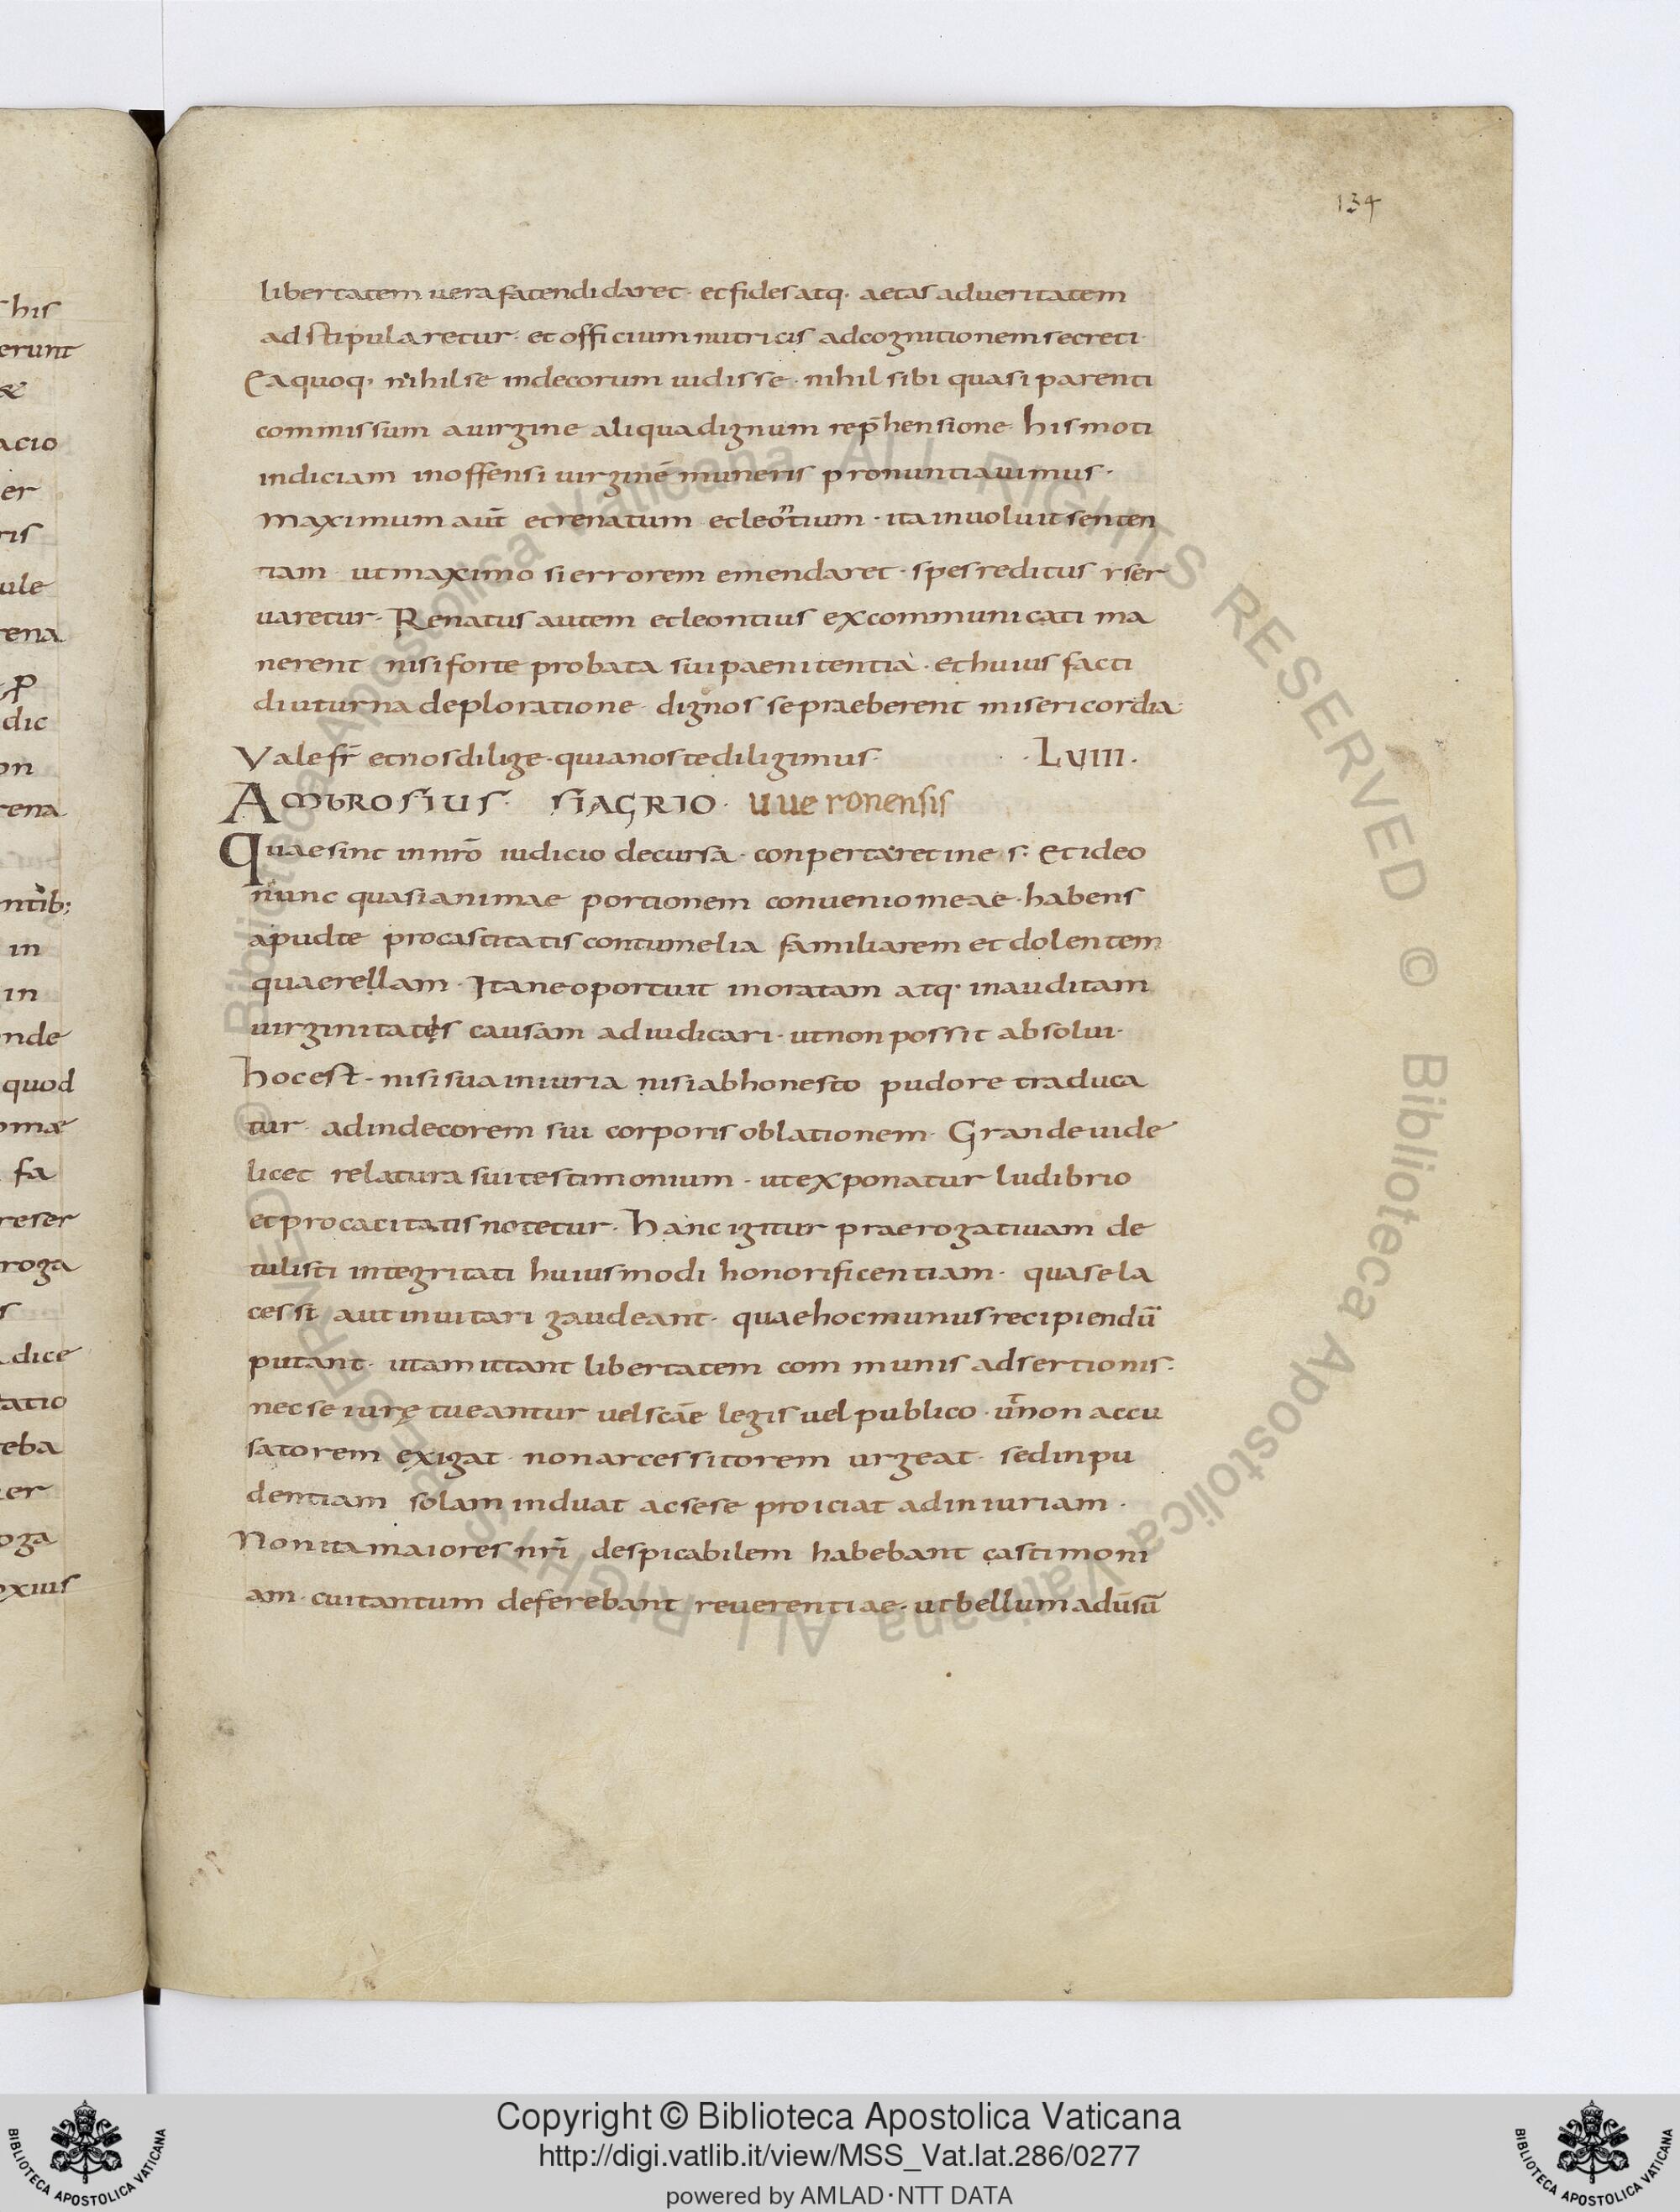 134
libertatem uera fatendi daret · et fides atq· aetas ad ueritatem
adstipularetur · et officium nutricis ad cognitionem secreti ·
Ea quoq· nihil se indecorum uidisse · nihil sibi quasi parenti
commissum a uirgine aliqua dignum rep̄hensione his moti
indiciam inoffensi uirginē muneris pronuntiauimus ·
maximum aut̄ et renatum et leontium · ita inuoluit senten
tiam ut maximo si errorem emendaret · spes reditus rser
uaretur · Renatus autem et leontius excommunicati ma
nerent nisi forte probata sui paenitentia · et huius facti
diuturna deploratione dignos se praeberent misericordia
Vale fr̄ et nos dilige · quia nos te diligimus · · LVIIII ·
AMbROSIUS · SIAGRIO · uueronensis
Quae sint in nr̄o iudicio decursa · conperta et ines s: Et ideo
nunc quasi animae portionem conuenio meae · habens
apud te pro castitatis contumelia familiarem et dolentem
quaerellam · Itane oportuit inoratam atq· inauditam
uirginitatis causam adiudicari · ut non possit absolui ·
hoc est · nisi sua iniuria nisi ab honesto pudore traduca
tur ad indecorem sui corporis oblationem · Grande uide
licet relatura sui testimonium · ut exponatur ludibrio
et procacitatis notetur · hanc igitur praerogatiuam de
tulisti integritati huiusmodi honorificentiam · qua se la
cessi aut inuitari gaudeant · quae hoc munus recipiendū
putant · ut amittant libertatem communis adsertionis ·
nec se iure tueantur uel scāe legis uel publico · ut̄ non accu
satorem exigat · non arcessitorem urgeat · sed inpu
dentiam solam induat ac sese proiciat ad iniuriam ·
Non ita maiores nr̄i despicabilem habebant castimoni
am · cui tantum deferebant reuerentiae · ut bellum adūsū
his
erunt
&
acio
er
ris
ule
rena
p
dic
on
rena
ntib;
in
in
nde
quod
omae
fa
reser
roga
s
dice
tatio
eba
er
oga
exiuis
© Biblioteca Apostolica Vaticana ALL RIGHTS RESERVED © Biblioteca Apostolica Vaticana ALL RIGHTS RESERVED
Copyright © Biblioteca Apostolica Vaticana
http://digi.vatlib.it/view/MSS_Vat.lat.286/0277
powered by AMLAD·NTT DATA
BIBLIOTECA APOSTOLICA VATICANA
BIBLIOTECA APOSTOLICA VATICANA